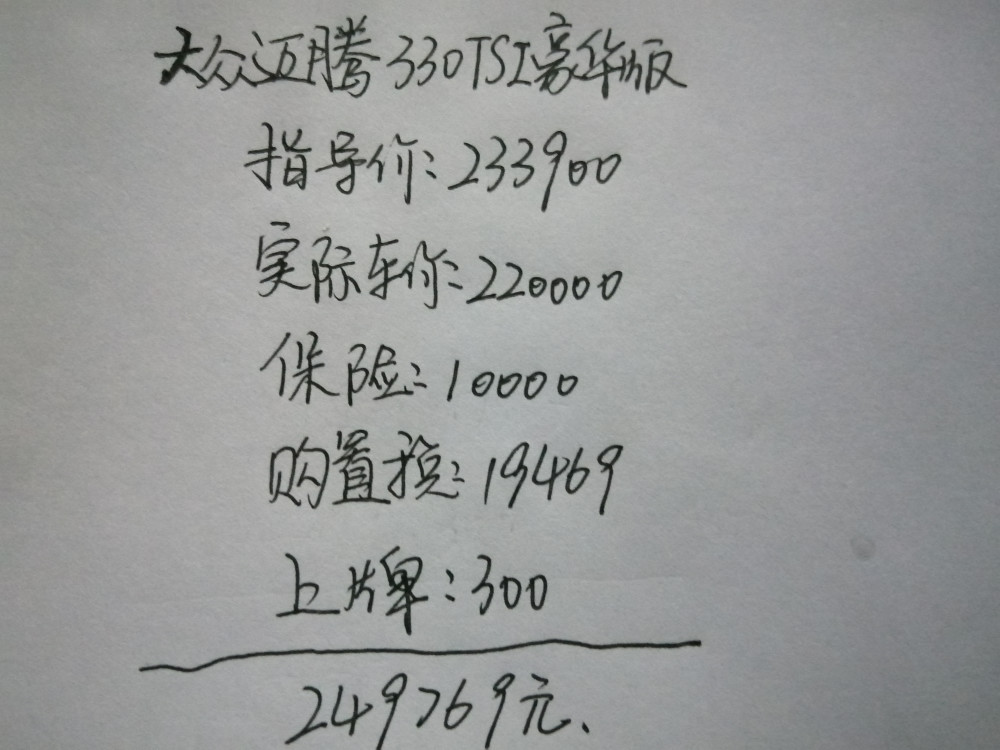 大众迈腾330TSI豪华版
指导价:233900
实际车价:220000
保险:10000
购置税:19469
上牌:300
249769元.